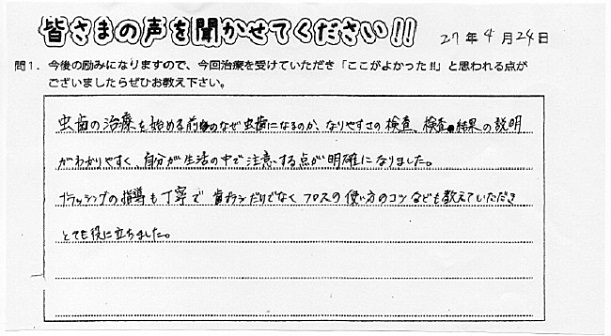 皆さまの声を聞かせてください!!
27年4月24日
問1．今後の励みになりますので、今回治療を受けていただき「ここがよかった!!」と思われる点が
ございましたらぜひお教え下さい。
虫歯の治療を始める前のなぜ虫歯になるのか、なりやすさの検査、検査結果の説明
がわかりやすく、自分が生活の中で注意する点が明確になりました。
ブラッシングの指導も丁寧で歯ブラシだけでなくフロスの使い方のコツなども教えていただき
とても役に立ちました。